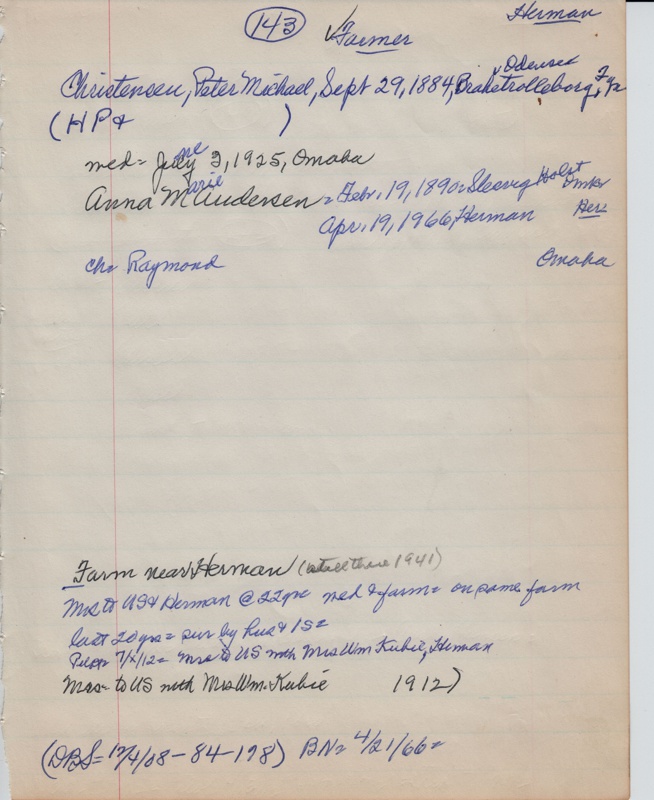 143 Herman
√Farmer
Odense
Christensen, Peter Michael, Sept 29, 1884, Brahetrolleborg, Fyn
(HP& )
ne
med= July 3, 1925, Omaha
arie
Anna M Andersen = Febr. 19, 1890= Slesvig Holst Dmk
Apr. 19, 1966, Herman Her
ch= Raymond Omaha
Farm near Herman (still there 1941)
Mrs to US & Herman @ 22 yrs med & farm= on same farm
last 20 yrs= sur by hus & 1S=
7/x/12= Mrs to US with Mrs Wm Kubie, Herman
Mrs= to US with Mrs Wm. Kubie 1912)
(DBS= 12/4/08-84-198) BN= 4/21/66=